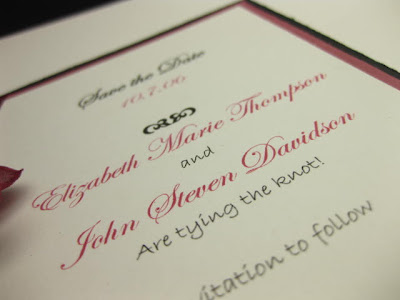 Save the Date
10.7.06
Elizabeth Marie Thompson
and
John Steven Davidson
Are tying the knot!
vitation to follow